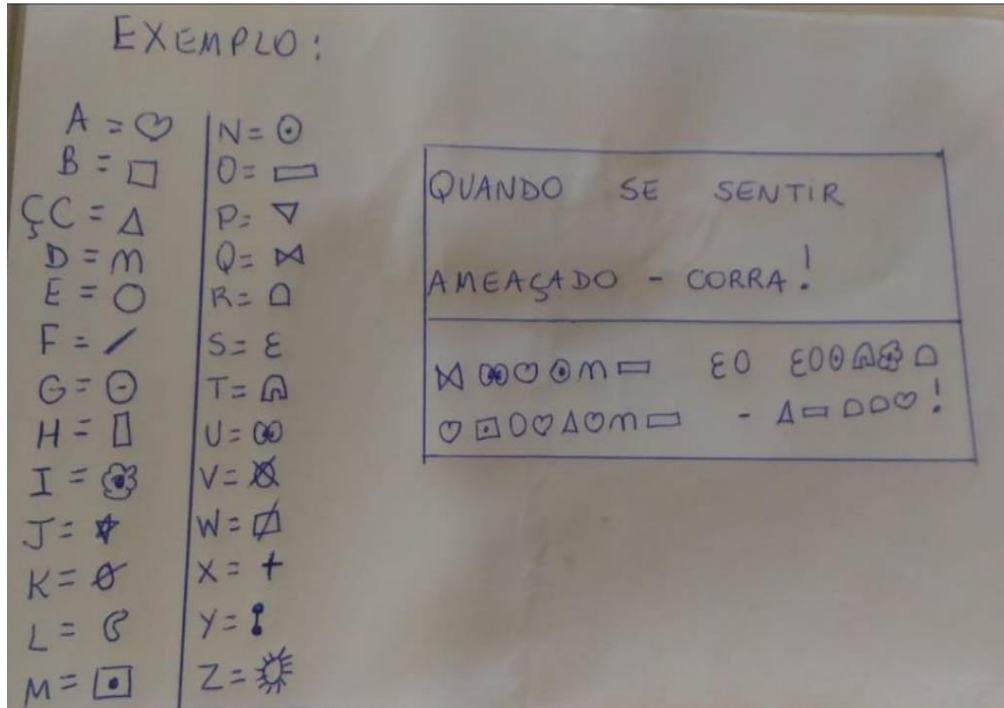 EXEMPLO:
A = ♡
B = □
ÇC = △
D = m
E = ○
F = /
G = ⊖
H = ▯
I =
J = ☆
K = ∅
L =
M = ⊡
N = ⊙
O = ▭
P = ▽
Q = ⋈
R =
S = ε
T =
U =
V =
W =
X = +
Y =
Z =
QUANDO SE SENTIR
AMEAÇADO - CORRA!